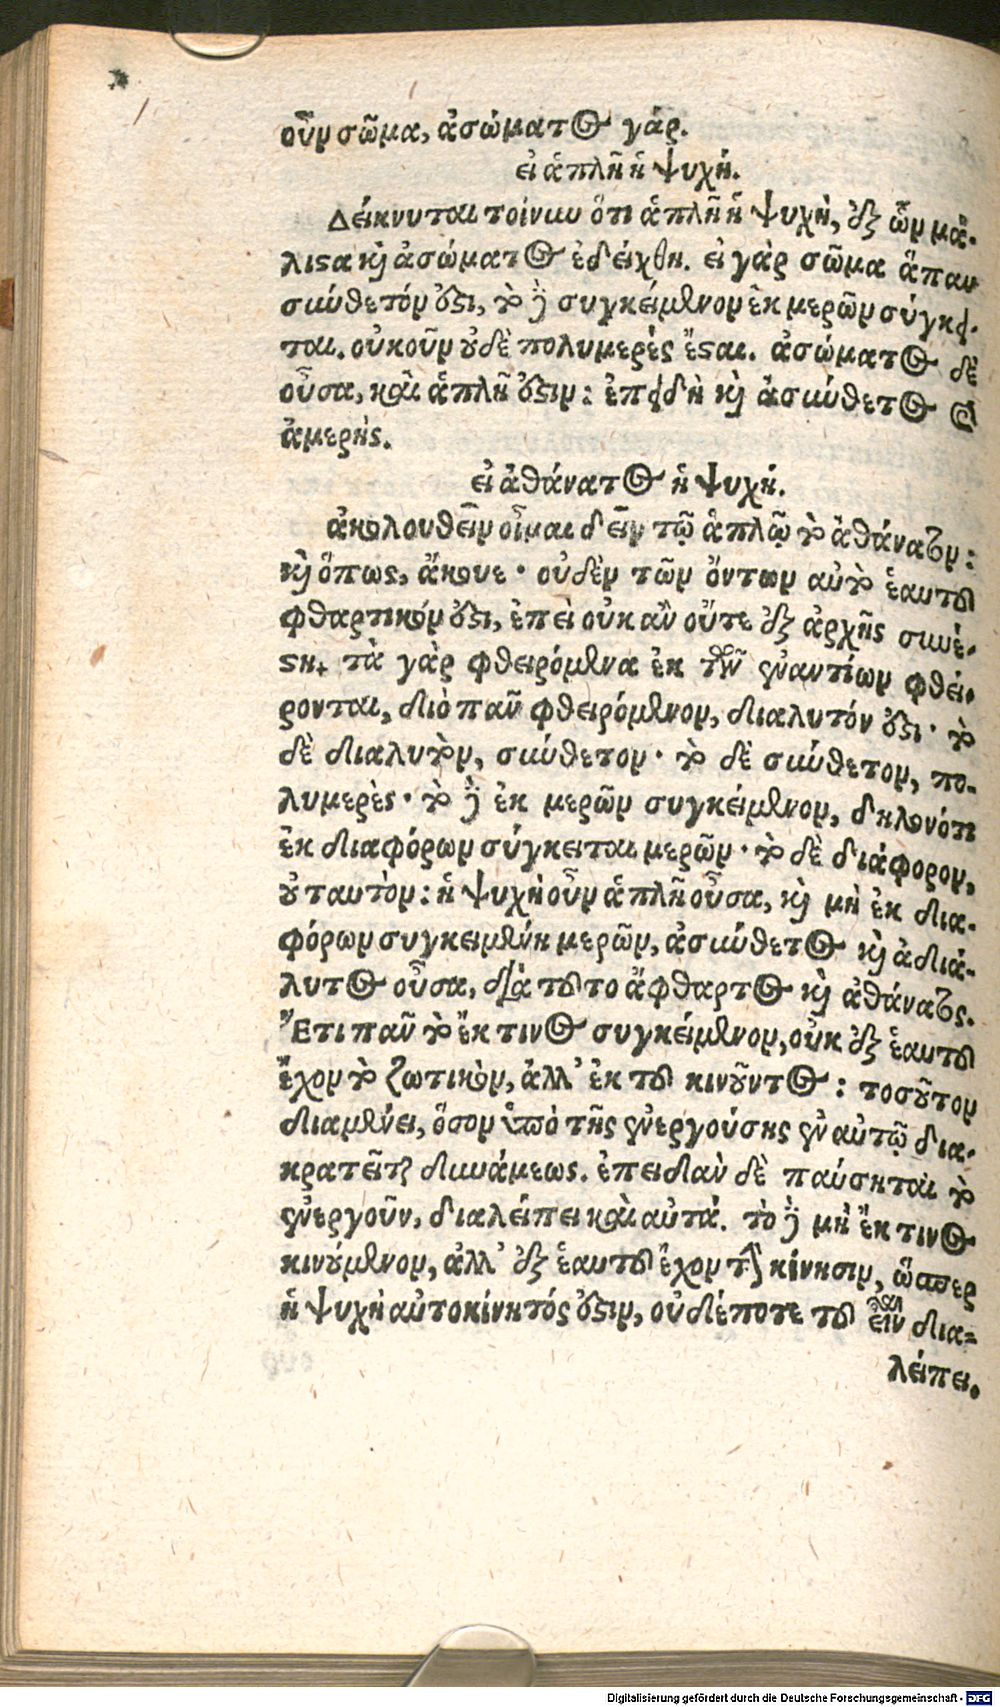 οὖν σῶμα, ἀσώματος γάρ.
εἰ ἁπλῆ ἡ ψυχή.
Δείκνυται τοίνυν ὅτι ἁπλῆ ἡ ψυχὴ, ἐξ ὧν μά-
λιστα καὶ ἀσώματος ἐδείχθη. εἰ γὰρ σῶμα ἅπαν
σύνθετόν ἐστι, τὸ δὲ συγκείμενον ἐκ μερῶν σύγκει-
ται. οὐκοῦν οὐδὲ πολυμερὲς ἔσται. ἀσώματος δὲ
οὖσα, καὶ ἁπλῆ ἐστιν: ἐπειδὴ καὶ ἀσύνθετος καὶ
ἀμερής.
εἰ ἀθάνατος ἡ ψυχή.
ἀκολουθεῖν οἶμαι δεῖν τῷ ἁπλῷ τὸ ἀθάνατον:
καὶ ὅπως, ἄκουε· οὐδὲν τῶν ὄντων αὐτὸ ἑαυτοῦ
φθαρτικόν ἐστι, ἐπεὶ οὐκ ἂν οὔτε ἐξ ἀρχῆς συνέ-
στη. τὰ γὰρ φθειρόμενα ἐκ τῶν ἐναντίων φθεί-
ρονται, διὸ πᾶν φθειρόμενον, διαλυτόν ἐστι· τὸ
δὲ διαλυτὸν, σύνθετον· τὸ δὲ σύνθετον, πο-
λυμερὲς· τὸ δὲ ἐκ μερῶν συγκείμενον, δηλονότι
ἐκ διαφόρων σύγκειται μερῶν· τὸ δὲ διάφορον,
οὐ ταυτὸν: ἡ ψυχὴ οὖν ἁπλῆ οὖσα, καὶ μὴ ἐκ δια-
φόρων συγκειμένη μερῶν, ἀσύνθετος καὶ ἀδιά-
λυτος οὖσα, διὰ τοῦτο ἄφθαρτος καὶ ἀθάνατος.
Ἔτι πᾶν τὸ ἔκ τινος συγκείμενον, οὐκ ἐξ ἑαυτοῦ
ἔχον τὸ ζωτικὸν, ἀλλ' ἐκ τοῦ κινοῦντος: τοσοῦτον
διαμένει, ὅσον ὑπὸ τῆς ἐνεργούσης ἐν αὐτῷ δια-
κρατεῖται δυνάμεως. ἐπειδὰν δὲ παύσηται τὸ
ἐνεργοῦν, διαλείπει καὶ αὐτά. τὸ δὲ μὴ ἔκ τινος
κινούμενον, ἀλλ' ἐξ ἑαυτοῦ ἔχον τὴν κίνησιν, ὥσπερ
ἡ ψυχὴ αὐτοκίνητός ἐστιν, οὐδέποτε τοῦ εἶναι δια-
λείπει.
Digitalisierung gefördert durch die Deutsche Forschungsgemeinschaft - DFG